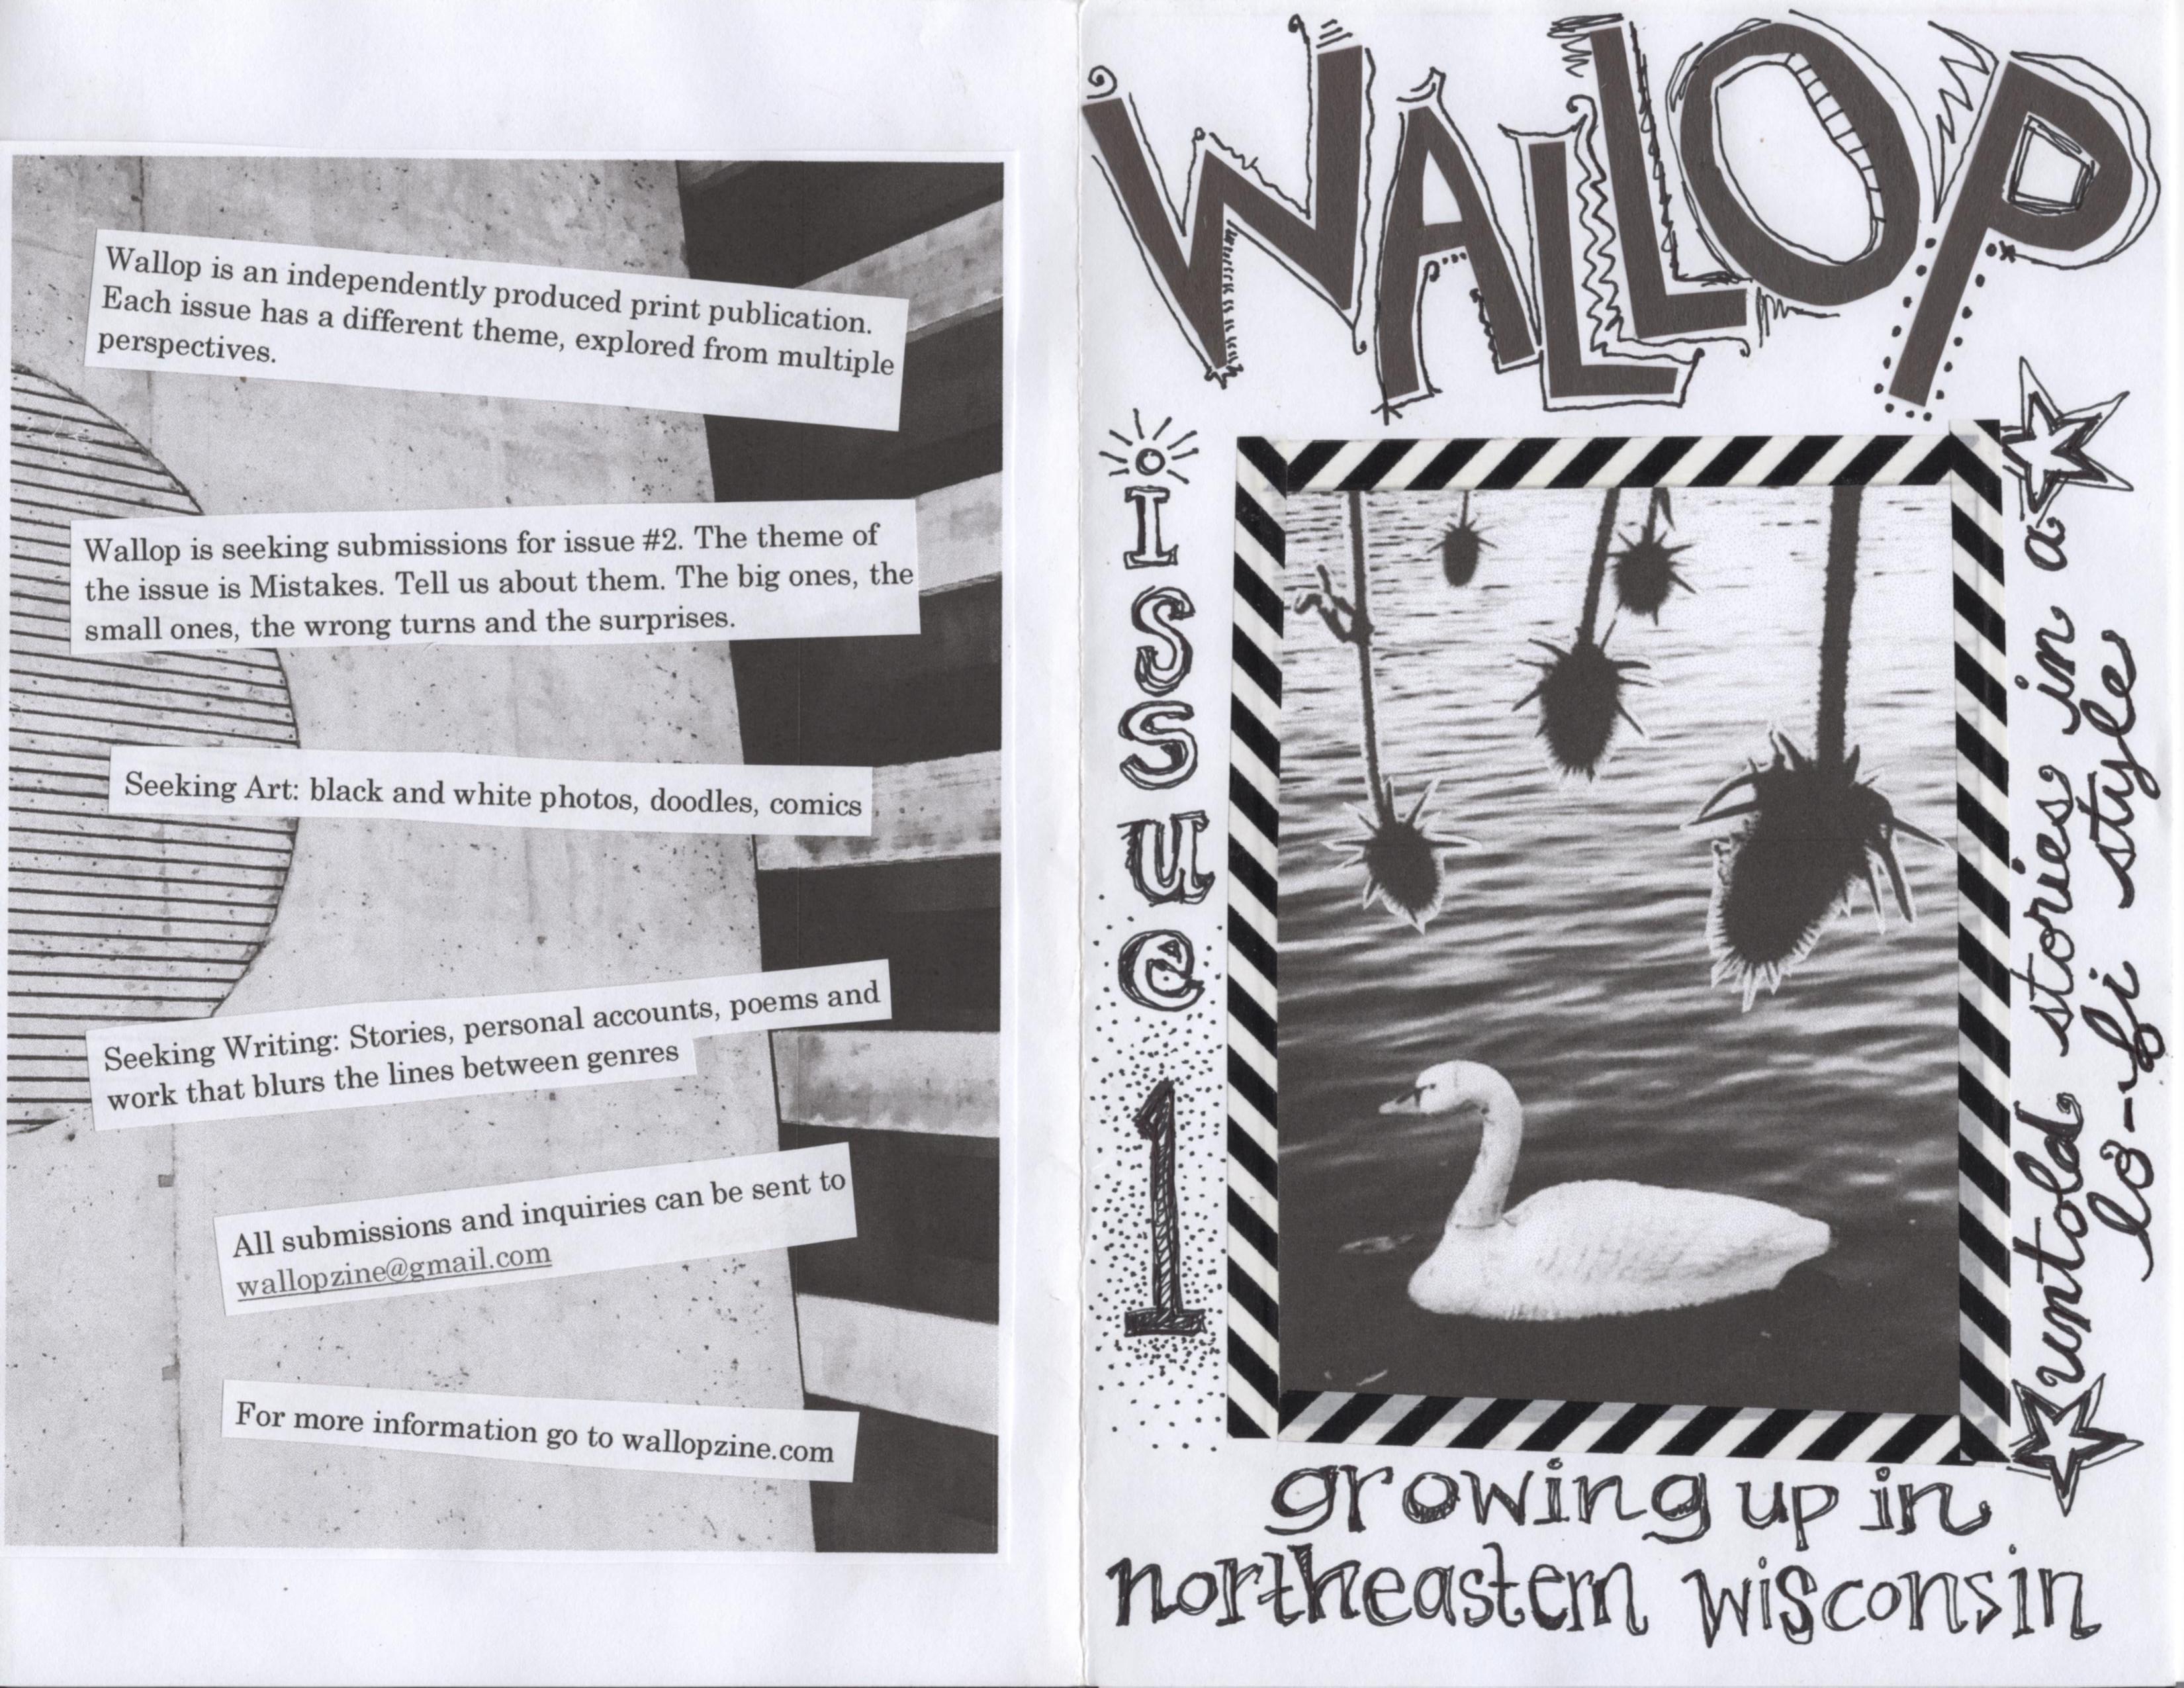 Wallop is an independently produced print publication.
Each issue has a different theme, explored from multiple
perspectives.
Wallop is seeking submissions for issue #2. The theme of
the issue is Mistakes. Tell us about them. The big ones, the
small ones, the wrong turns and the surprises.
Seeking Art: black and white photos, doodles, comics
Seeking Writing: Stories, personal accounts, poems and
work that blurs the lines between genres
All submissions and inquiries can be sent to
wallopzine@gmail.com
For more information go to wallopzine.com
WALLOP
issue 1
untold stories in a
lo-fi style
growing up in
northeastern wisconsin